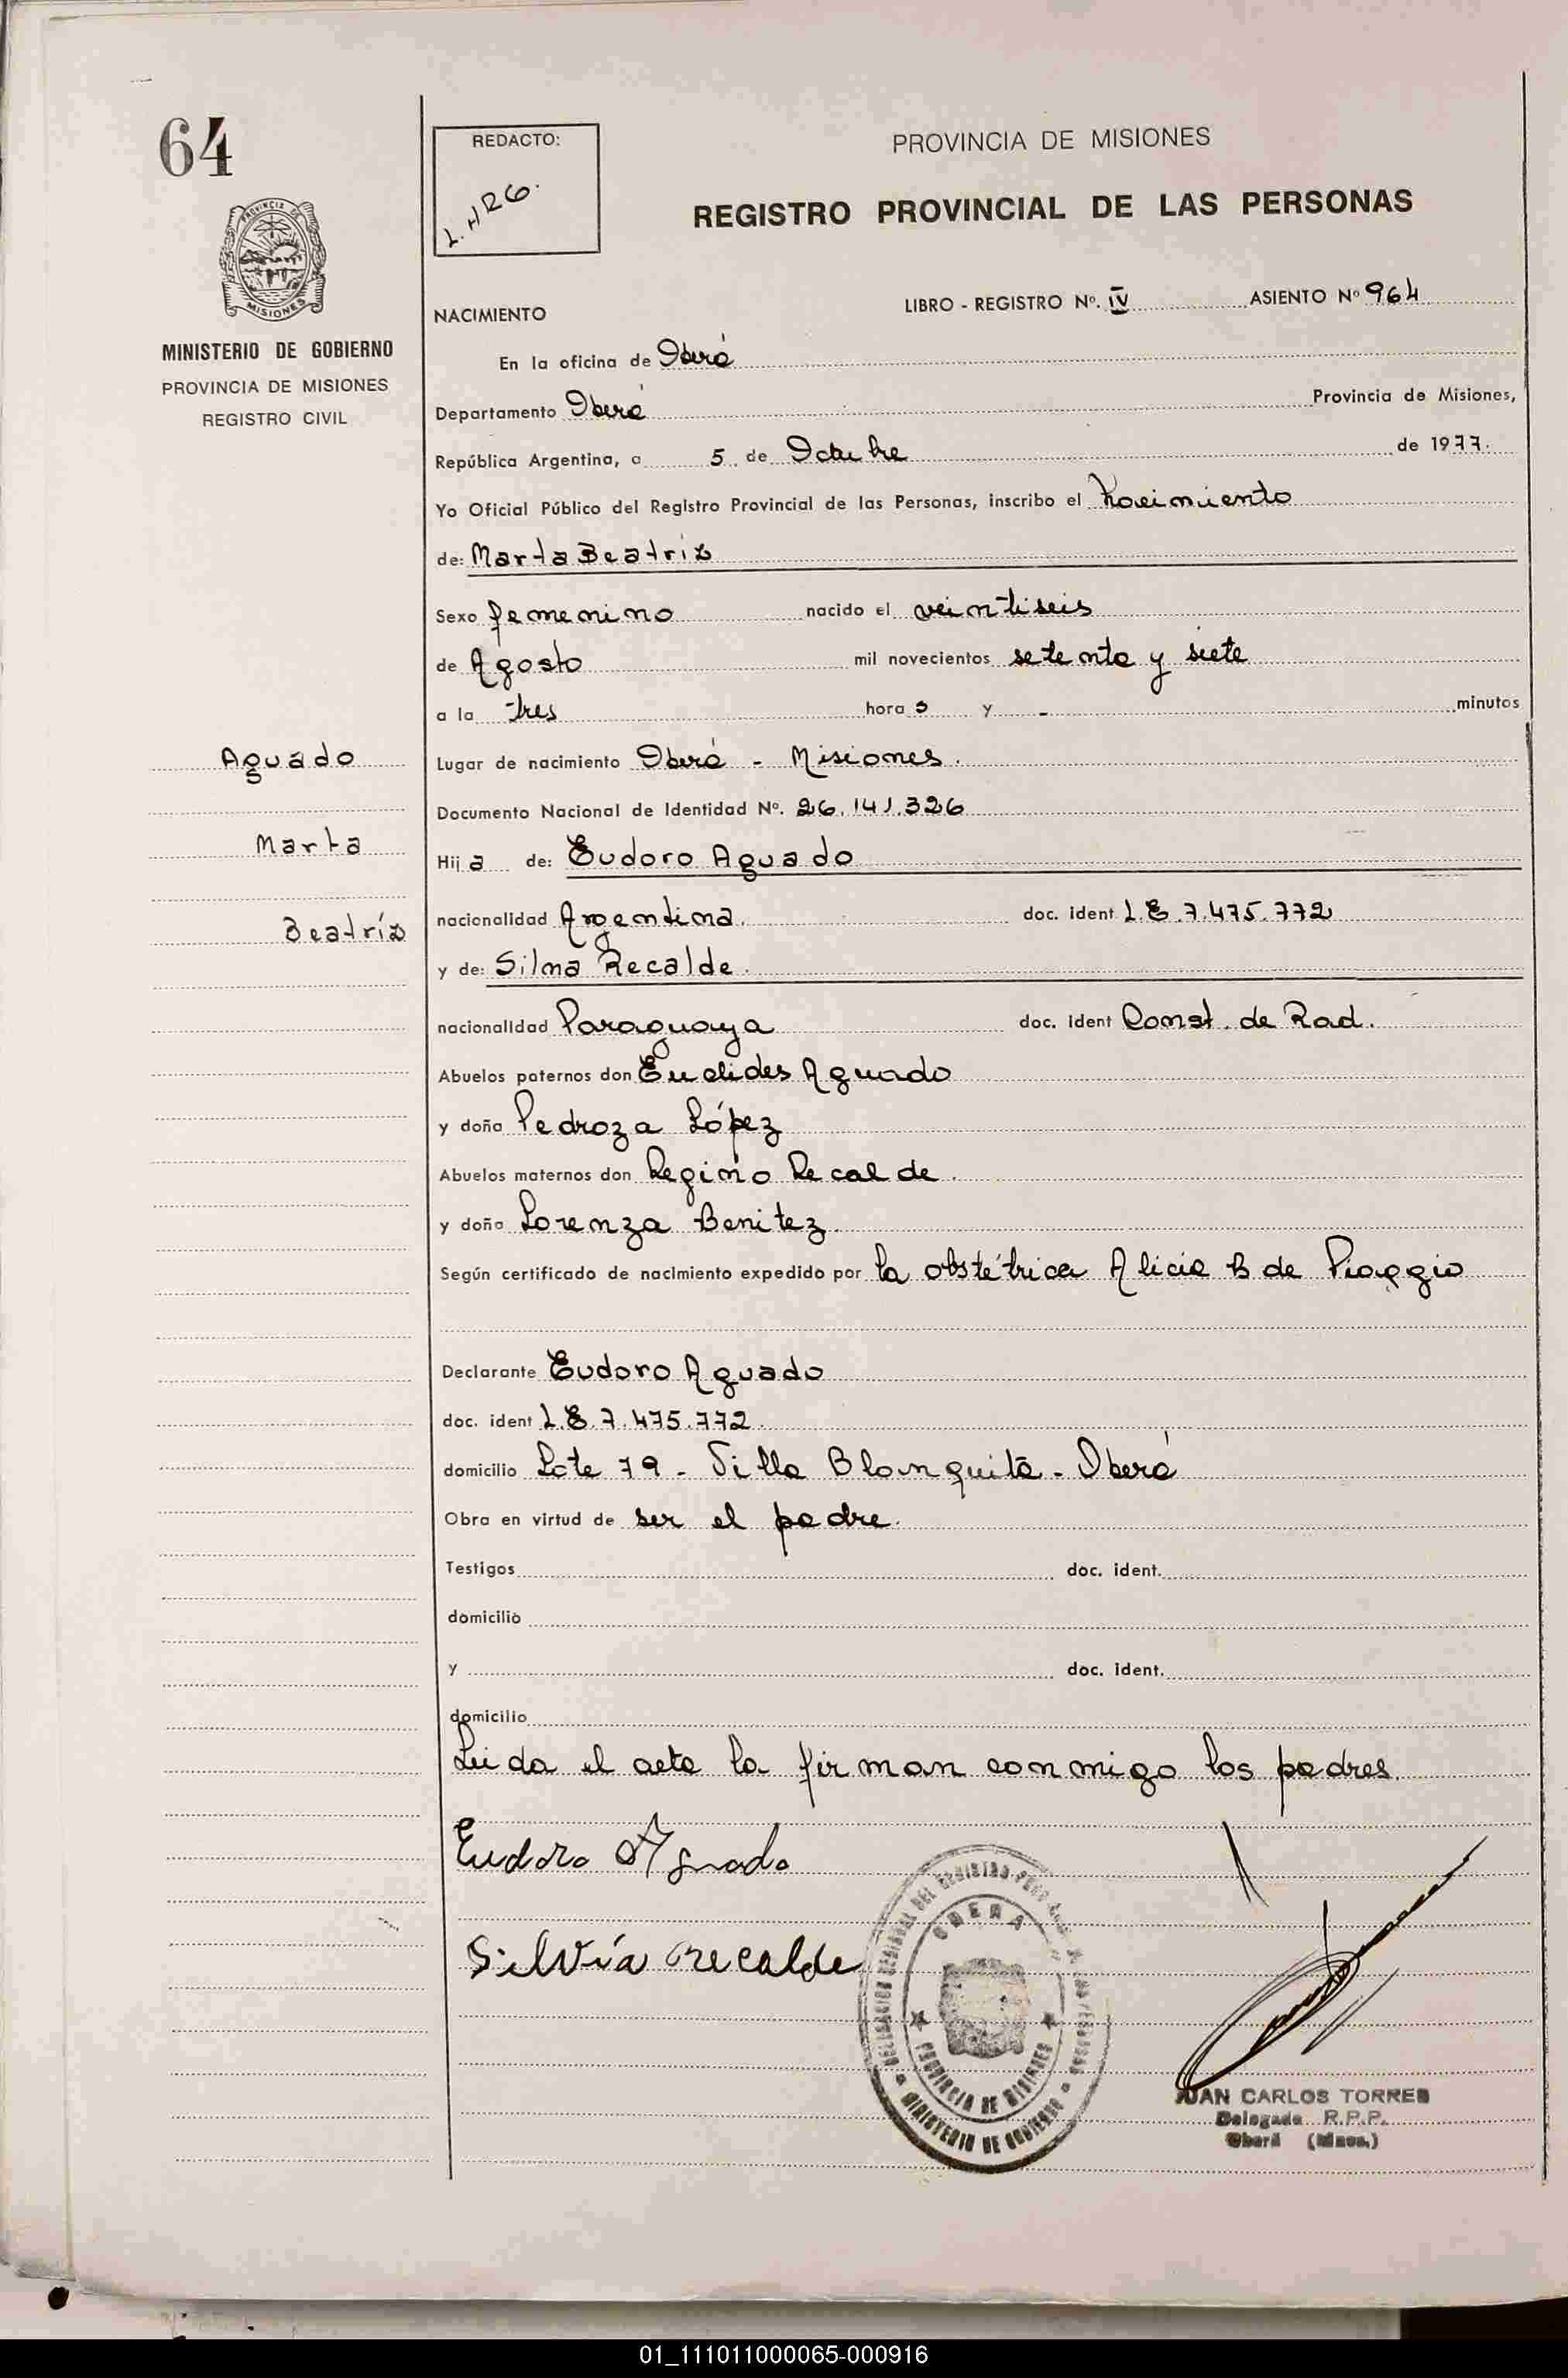 64
REDACTO:
L.HRG.
PROVINCIA DE MISIONES
REGISTRO PROVINCIAL DE LAS PERSONAS
PROVINCIA DE
MISIONES
MINISTERIO DE GOBIERNO
PROVINCIA DE MISIONES
REGISTRO CIVIL
NACIMIENTO
LIBRO - REGISTRO Nº. IV ASIENTO Nº 964
En la oficina de Oberá
Departamento Oberá Provincia de Misiones,
República Argentina, a 5 de Octubre de 1977.
Yo Oficial Público del Registro Provincial de las Personas, inscribo el Nacimiento
de: Marta Beatríz
Sexo femenino nacido el veintiseis
de Agosto mil novecientos setenta y siete
a la tres hora s y - minutos
Lugar de nacimiento Oberá - Misiones.
Documento Nacional de Identidad Nº. 26.141.326
Hij a de: Eudoro Aguado
nacionalidad Argentina. doc. ident L.E 7.475.772
y de: Silma Recalde.
nacionalidad Paraguaya doc. ident Const. de Rad.
Abuelos paternos don Euclides Aguado
y doña Pedroza López
Abuelos maternos don Regino Recalde.
y doña Lorenza Benitez.
Según certificado de nacimiento expedido por la obstétrica Alicia B de Piaggio
Aguado
Marta
Beatríz
Declarante Eudoro Aguado
doc. ident L.E 7.475.772.
domicilio Lote 79 - Villa Blanquita - Oberá
Obra en virtud de ser el padre.
Testigos doc. ident.
domicilio
y doc. ident.
domicilio
Leida el acta la firman conmigo los padres.
Eudoro Aguado
Silvia recalde
OBERA
PROVINCIA DE MISIONES
MINISTERIO DE GOBIERNO
JUAN CARLOS TORRES
Delegado R.P.P.
Oberá (Mnes.)
01_111011000065-000916